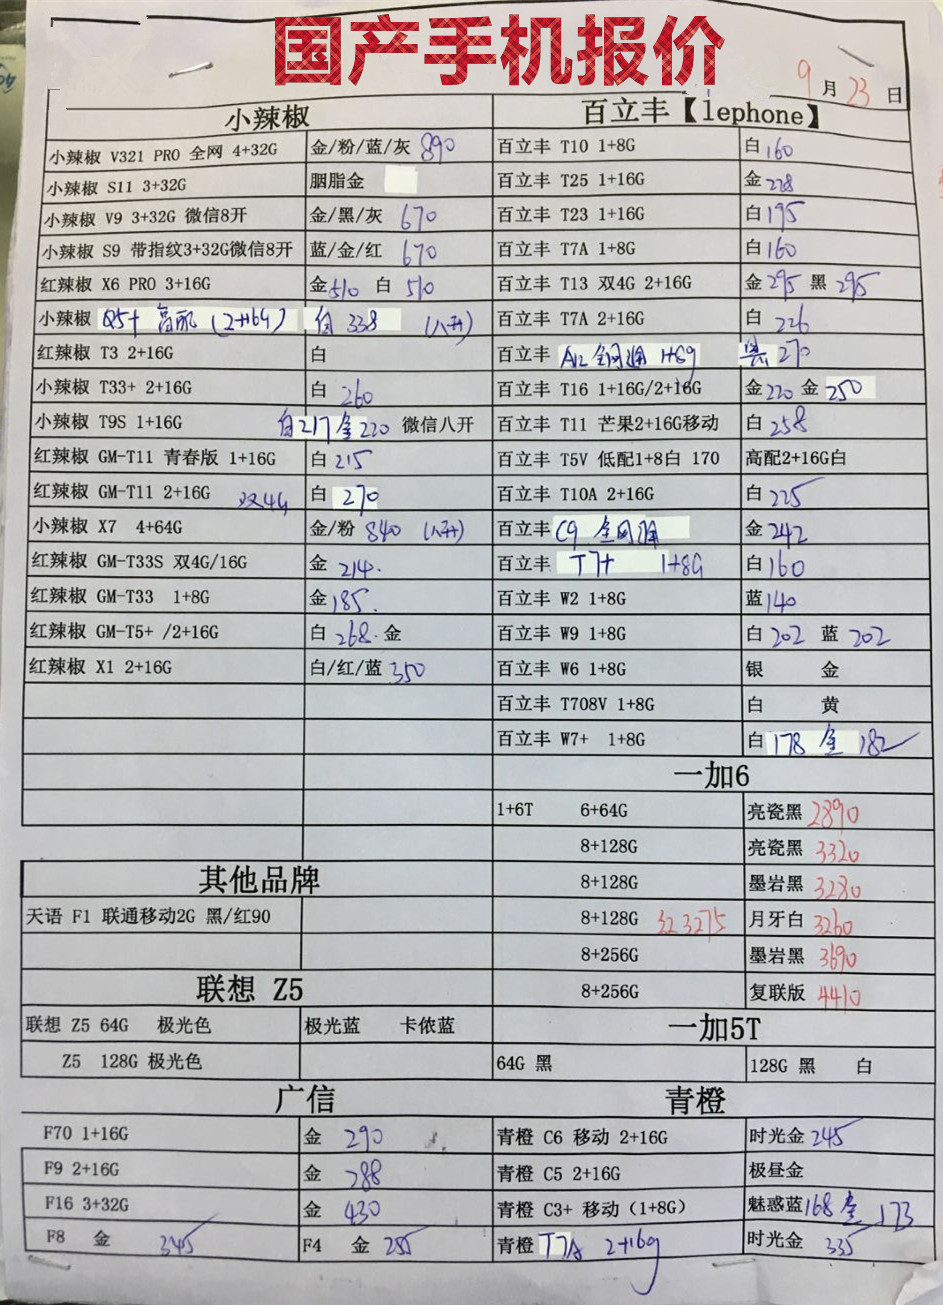 国产手机报价
9月23日
小辣椒
小辣椒 V321 PRO 全网 4+32G 金/粉/蓝/灰 890
小辣椒 S11 3+32G 胭脂金
小辣椒 V9 3+32G 微信8开 金/黑/灰 670
小辣椒 S9 带指纹3+32G微信8开 蓝/金/红 670
红辣椒 X6 PRO 3+16G 金510 白 510
小辣椒 Q5+ 高配 (2+16G) 白 338 (八开)
红辣椒 T3 2+16G 白
小辣椒 T33+ 2+16G 白 260
小辣椒 T9S 1+16G 白217 金220 微信八开
红辣椒 GM-T11 青春版 1+16G 白 215
红辣椒 GM-T11 2+16G 双4G 白 270
小辣椒 X7 4+64G 金/粉 840 (八开)
红辣椒 GM-T33S 双4G/16G 金 214.
红辣椒 GM-T33 1+8G 金 185.
红辣椒 GM-T5+ /2+16G 白 268. 金
红辣椒 X1 2+16G 白/红/蓝 350
其他品牌
天语 F1 联通移动2G 黑/红90
联想 Z5
联想 Z5 64G 极光色 极光蓝 卡侬蓝
Z5 128G 极光色
广信
F70 1+16G 金 290
F9 2+16G 金 288
F16 3+32G 金 430
F8 金 345 F4 金 255
百立丰【lephone】
百立丰 T10 1+8G 白 160
百立丰 T25 1+16G 金 228
百立丰 T23 1+16G 白 195
百立丰 T7A 1+8G 白 160
百立丰 T13 双4G 2+16G 金 295 黑 295
百立丰 T7A 2+16G 白 226
百立丰 A12 全网通 1+8g 黑 270
百立丰 T16 1+16G/2+16G 金220 金 250
百立丰 T11 芒果2+16G移动 白 258
百立丰 T5V 低配1+8白 170 高配2+16G白
百立丰 T10A 2+16G 白 225
百立丰 C9 全网通 金 242
百立丰 T7+ 1+8G 白 160
百立丰 W2 1+8G 蓝 140
百立丰 W9 1+8G 白 202 蓝 202
百立丰 W6 1+8G 银 金
百立丰 T708V 1+8G 白 黄
百立丰 W7+ 1+8G 白 178 金 182
一加6
1+6T 6+64G 亮瓷黑 2890
8+128G 亮瓷黑 3320
8+128G 墨岩黑 3280
8+128G 32 3275 月牙白 3260
8+256G 墨岩黑 3690
8+256G 复联版 4410
一加5T
64G 黑 128G 黑 白
青橙
青橙 C6 移动 2+16G 时光金 245
青橙 C5 2+16G 极昼金
青橙 C3+ 移动（1+8G） 魅惑蓝168 金 173
青橙 T7A 2+16g 时光金 335